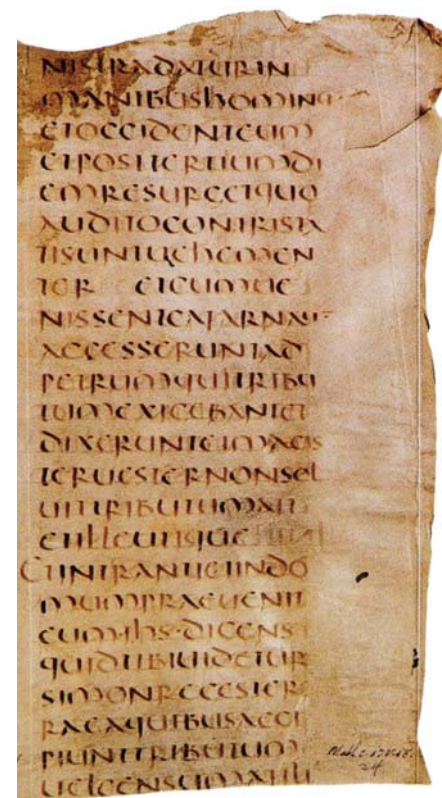 NISTRADATURIN
MANIBUSHOMINU
ETOCCIDENTEUM
ETPOSTTERTIUMDI
EMRESURGETQUO
AUDITOCONTRISTA
TISUNTUEHEMEN
TER ETCUMUE
NISSENTCAFARNAU
ACCESSERUNTAD
PETRUMQUITRIBU
TUMEXIGEBANTET
DIXERUNTEIMAGIS
TERUESTERNONSOL
UITTRIBUTUMAIT
ETILLEUTIQUE
ETINTRANTEINDO
MUMPRAEUENIT
EUMIHS·DICENS
QUIDTIBIUIDETUR
SIMONREGESTER
RAEAQUIBUSACCI
PIUNTTRIBUTUM
UELCENSUMAFILI
24